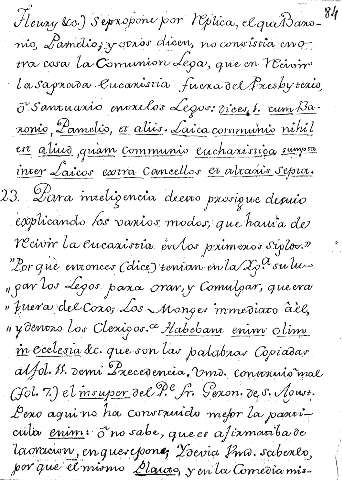 84
Fleury &c.) Se propone por Replica, el que Baro-
nio, Pamelio, y otros dicen, no consistia en o-
tra cosa la Comunion Lega, que en recivir
la Sagrada Eucaristia fuera del Presbyterio,
ò Santuario entre los Legos: Dices. 1. cum Ba-
ronio, Pamelio, et aliis. Laica communio nihil
est aliud, quam communio eucharistica sumpta
inter Laicos extra Cancellos et altaris Septa.
23. Para inteligencia de esto prosigue despues
explicando los varios modos, que havia de
recivir la Eucaristia en los primeros Siglos."
"Porque entonces (dice) tenian en la Ygª. su lu-
" gar los Legos para orar, y Comulgar, que era
" fuera del Coro, Los Monges inmediato à èl,
" y dentro los Clerigos. Habebant enim olim
in ecclesia &c. que son las palabras Copiadas
al fol. 11. de mi Precedencia, Vmd. construiò mal
(fol. 7.) el insuper del Pe. Fr. Geron. de S. Agust.
Pero aqui no ha construido mejor la parti-
cula enim: ò no sabe, que es afirmativa de
la oracion, en que se pone; Y devia Vmd. saberlo,
por que el mismo Plauto, y en la Comedia mis-